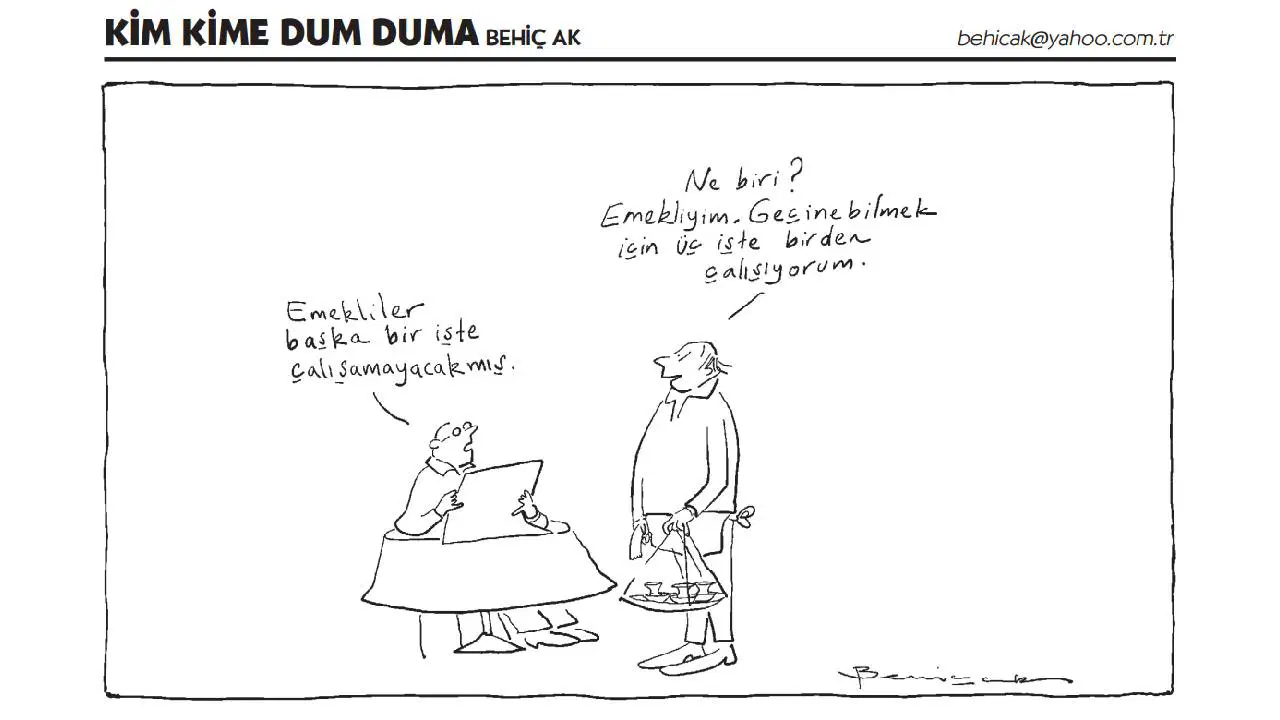 KİM KİME DUM DUMA BEHİÇ AK
behicak@yahoo.com.tr
Ne biri?
Emekliyim. Geçinebilmek
için üç işte birden
çalışıyorum.
Emekliler
başka bir işte
çalışamayacakmış.
Behiç Ak